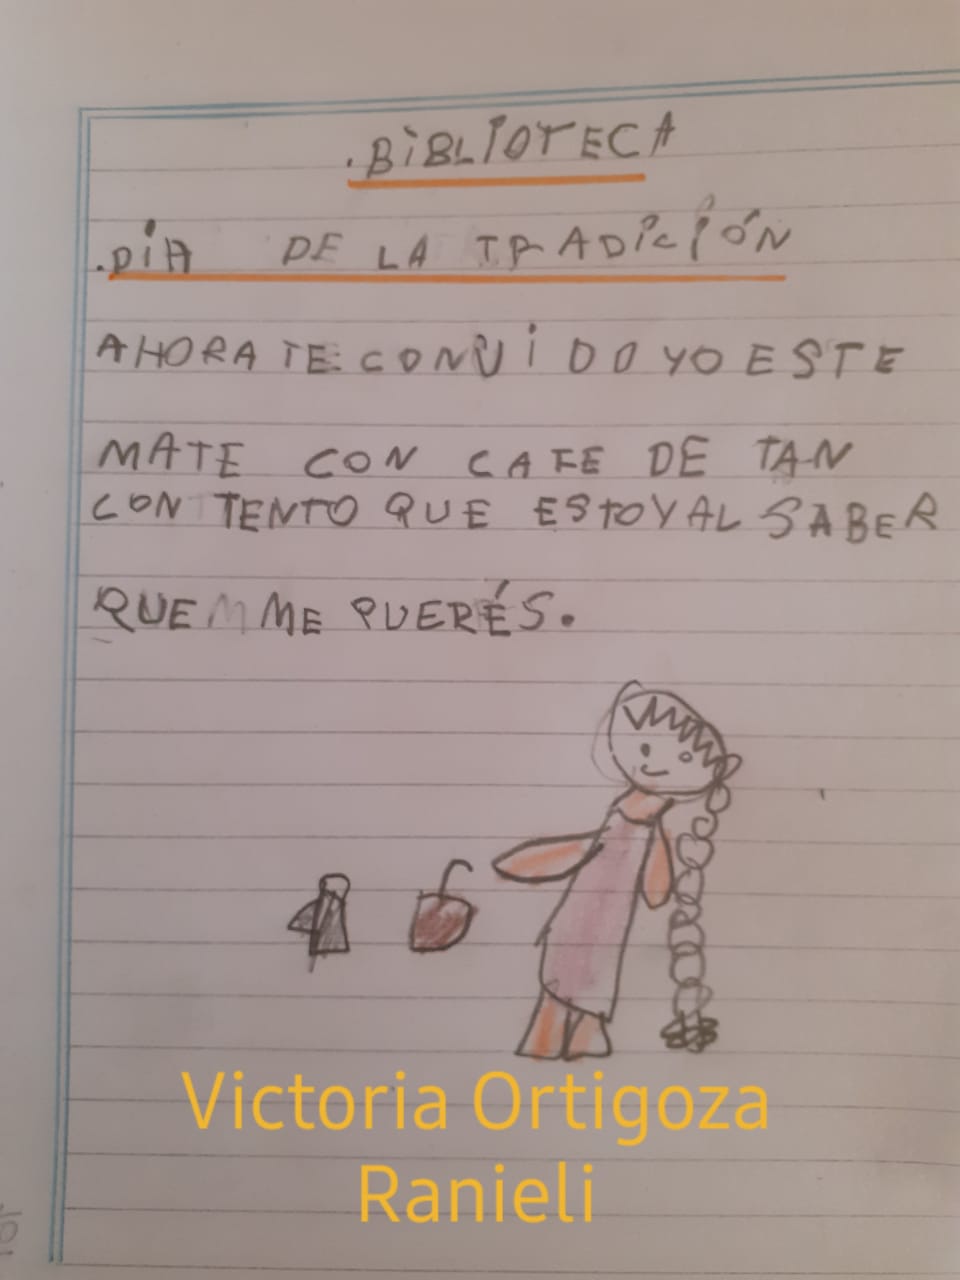 .BiBLIOTECA
.DíA DE LA TRADiCIÓN
AHORA TE CONViDO YO ESTE
MATE CON CAFE DE TAN
CONTENTO QUE ESTOY AL SABER
QUE M ME QUERÉS.
Victoria Ortigoza
Ranieli